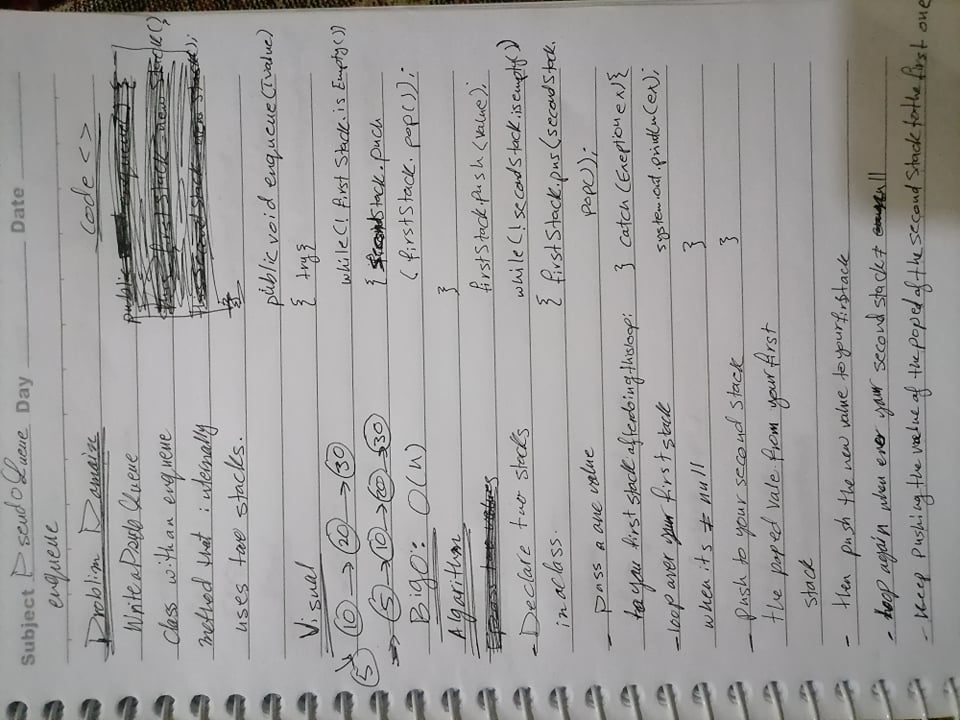 Subject PseudoQueue Day Date
enqueue
Problim Domaine
Write a PseudoQueue
class with an enqueue
method that internally
uses two stacks.
Visual
5 10 → 20 → 30
→ 5 → 10 → 20 → 30
BigO: O(N)
Algorithm
- Declare two stacks
in a class.
- pass a one value
to you first stack after doing this loop:
- loop over your first stack
when its ≠ null
- push to your second stack
the poped vale from your first
stack
- then push the new value to your firststack
- loop again when ever your second stack ≠ null
- keep pushing the value of the poped of the second Stack to the first one
code <>
public
public void enqueue(T value)
{ try{
while(! first Stack.is Empty())
{ secondStack.push
(firstStack.pop());
}
firstStack.push(value);
while(!secondStack.isempty())
{ firstStack.pus(secondStack.
pop());
} catch (Exeption ex){
system.out.println(ex);
}
}